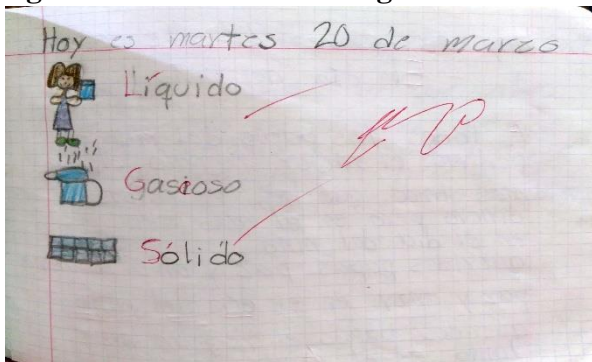 Hoy es martes 20 de marzo
Líquido
Gaseoso
Sólido